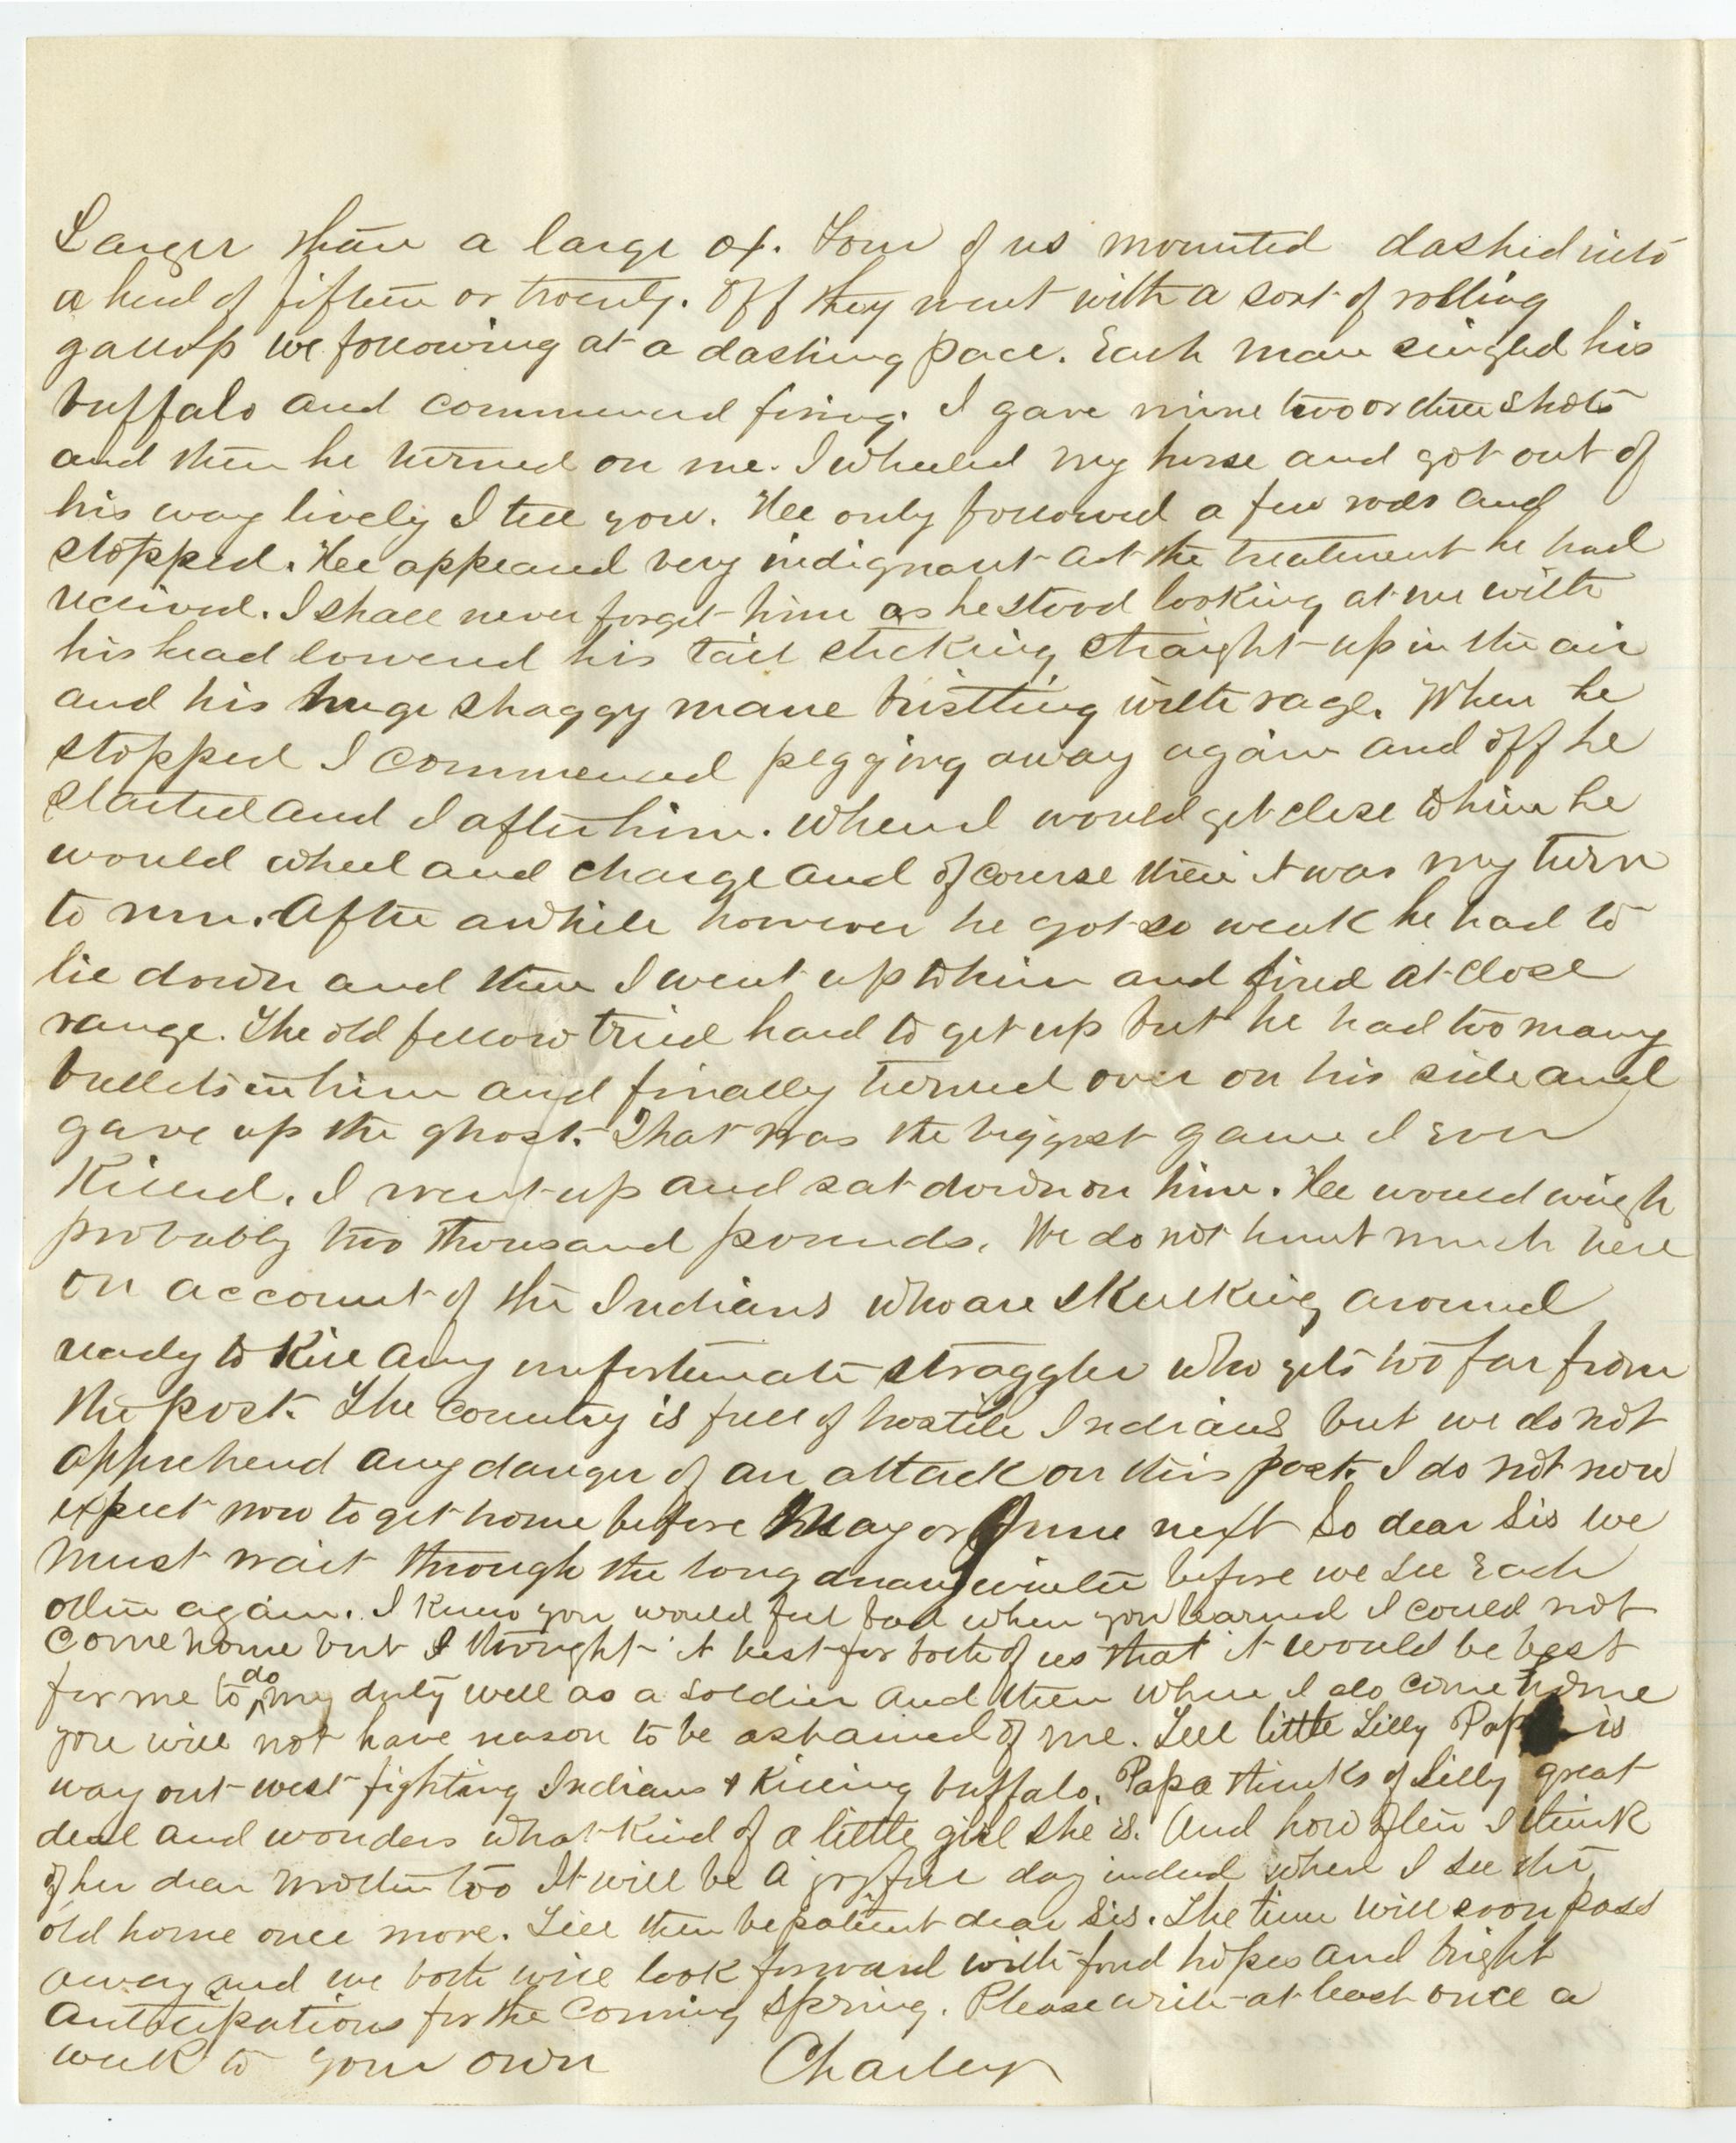 Larger than a large ox. Four of us mounted dashed into
a herd of fifteen or twenty. Off they went with a sort of rolling
gallop we following at a dashing pace. Each man singled his
buffalo and commenced firing. I gave mine two or three shots
and then he turned on me. I wheeled my horse and got out of
his way lively I tell you. Hee only followed a few rods and
stopped. Hee appeared very indignant at the treatment he had
received. I shall never forget him as he stood looking at me with
his head lowered his tail sticking straight up in the air
and his huge shaggy mane bristling with rage. When he
stopped I commenced pegging away again and off he
started and I after him. When I would get close to him he
would wheel and charge and of course then it was my turn
to run. After awhile however he got so weak he had to
lie down and then I went up to him and fired at close
range. The old fellow tried hard to get up but he had too many
bullets in him and finally turned over on his side and
gave up the ghost. That was the biggest game I ever
killed. I went up and sat down on him. Hee would weigh
probably two thousand pounds. We do not hunt much here
on account of the Indians who are skulking around
ready to kill any unfortunate straggler who gets too far from
the post. The country is full of hostile Indians but we do not
apprehend any danger of an attack on this post. I do not now
expect now to get home before May or June next So dear Sis we
must wait through the long dreary winter before we see each
other again. I knew you would feel bad when you learned I could not
come home but I thought it best for both of us that it would be best
for me to do my duty well as a soldier and then when I do come home
you will not have reason to be ashamed of me. Tell little Lilly Papa is
way out west fighting Indians & killing buffalo. Papa thinks of Lilly great
deal and wonders what kind of a little girl she is. And how often I think
of her dear mother too It will be a joyful day indeed when I see the
old home once more. Till then be patient dear Sis. The time will soon pass
away and we both will look forward with fond hopes and bright
anticipations for the coming spring. Please write at least once a
week to your own Charley